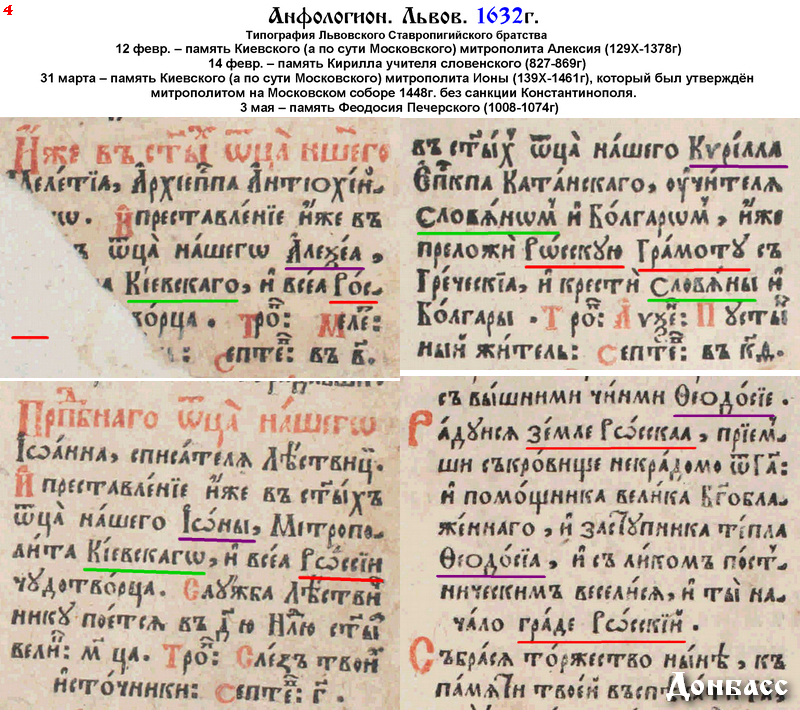 4
Анфологион. Львов. 1632г.
Типография Львовского Ставропигийского братства
12 февр. – память Киевского (а по сути Московского) митрополита Алексия (129Х-1378г)
14 февр. – память Кирилла учителя словенского (827-869г)
31 марта – память Киевского (а по сути Московского) митрополита Ионы (139Х-1461г), который был утверждён
митрополитом на Московском соборе 1448г. без санкции Константинополя.
3 мая – память Феодосия Печерского (1008-1074г)
Иже въ ст҃ы́хъ ѿц҃а̀ на́шего
Меле́тїа, А҆рхїеп҃па А҆нтїохі́й-
И҆ преставле́нїе и҆́же въ
ѿц҃а̀ на́шегѡ А҆леѯе́а,
Кі́евскаго, и҆ всеа̀ Рѡ́с-
Тро҃: Меле́:
Септе҃: въ в҃.
въ ст҃ы́хъ ѿц҃а̀ на́шего Кѷрі́лла
Е҆п҃кпа Ката́нскаго, ᲂу҆чи́телѧ
Словѧ́нѡмъ и҆ Бо́лгарѡмъ, и҆́же
преложѝ Рѡ́сскую Гра́моту съ
Гре́ческїа, и҆ крестѝ Словѧ́ны и҆
Бо́лгары. Тро҃: А҆ѵѯе҃: Пꙋсты́н
ный жи́тель: Септе҃: въ к҃д.
Прп҃бнаго ѿц҃а̀ на́шегѡ
І҆ѡа́нна, списа́телѧ Лѣ́ствиц.
И҆ преставле́нїе и҆́же въ ст҃ы́хъ
ѿц҃а̀ на́шего І҆ѡ́ны, Митропо-
ли́та Кі́евскагѡ, и҆ всеа̀ Рѡ́ссїи
чꙋдотво́рца. Слꙋ́жба Лѣ́стви
никꙋ пое́тсѧ въ д҃ ю Нл҃ю ст҃ы́
вели҃: м҃ ца. Тро҃: Сле́зъ твои́
и҆сто́чники: Септе҃: г҃.
съ вы́шними чи́нми Ѳеодо́сїе.
Ра́дꙋйсѧ зе́мле Рѡ́сскаа, прїе́м-
ши съкро́вище некра́домо ѿ Г҃а:
и҆ помо́щника вели́ка Бг҃обла-
же́ннаго, и҆ застꙋ́пника те́пла
Ѳеодо́сїа, и҆ съ ли́комъ по́ст-
ническимъ весели́сѧ, и҆ ты̀ на-
ча́ло гра́де Рѡ́сскїй.
Събра́сѧ торжество̀ ны́нѣ, къ
па́мѧти твое́й
Донбасс